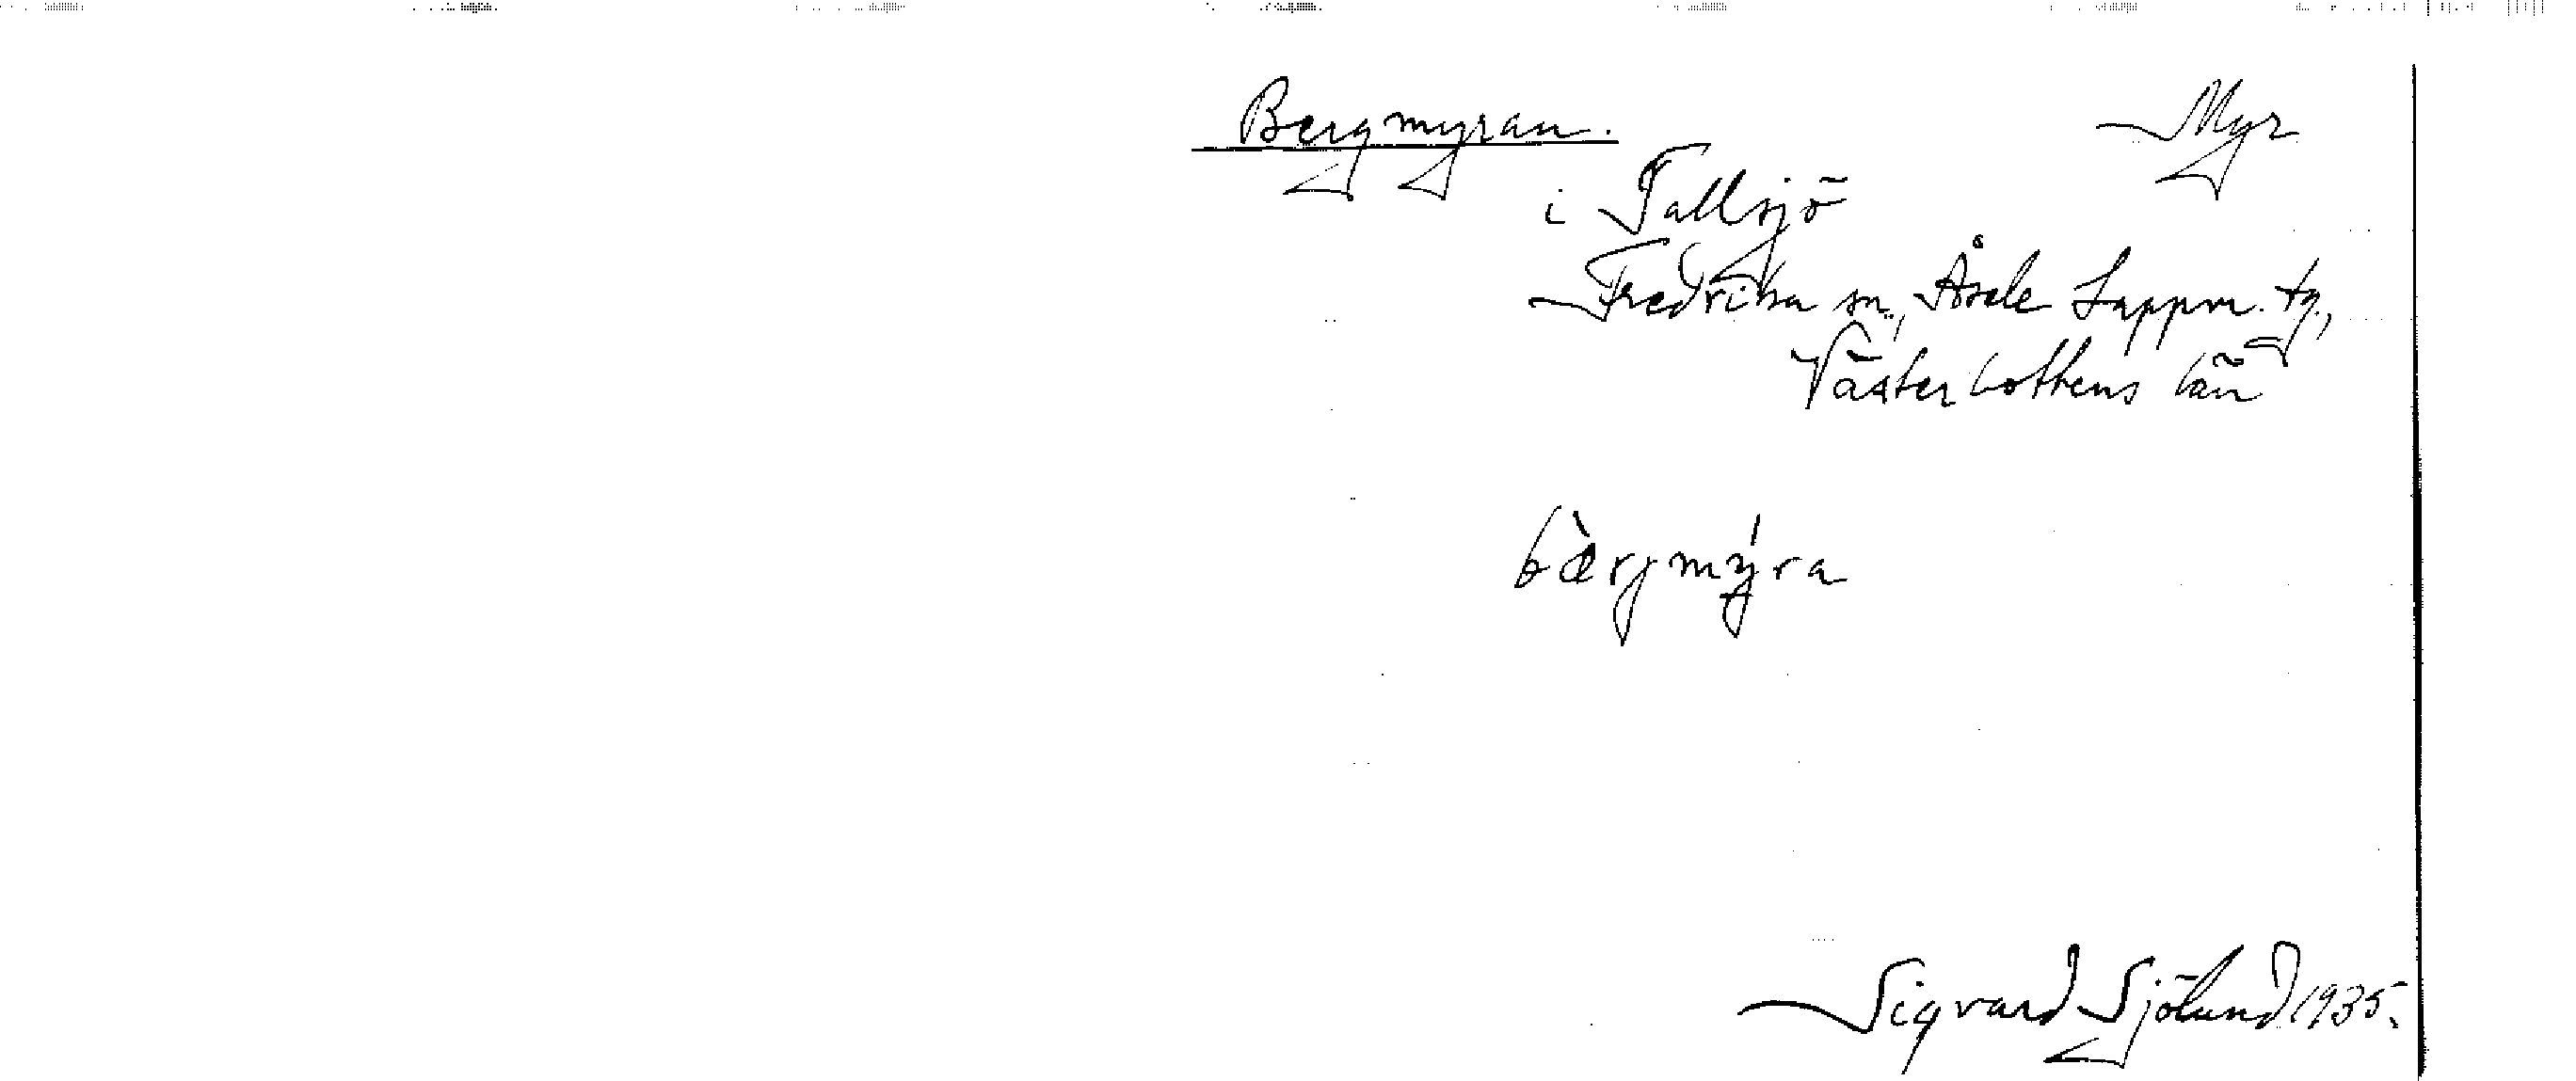 Bergmyran. Myr
i Tallsjö
Fredrika sn., Åsele Lappm. tg.,
Västerbottens län
bæ̀rjmýra
Sigvard Sjölund 1935.